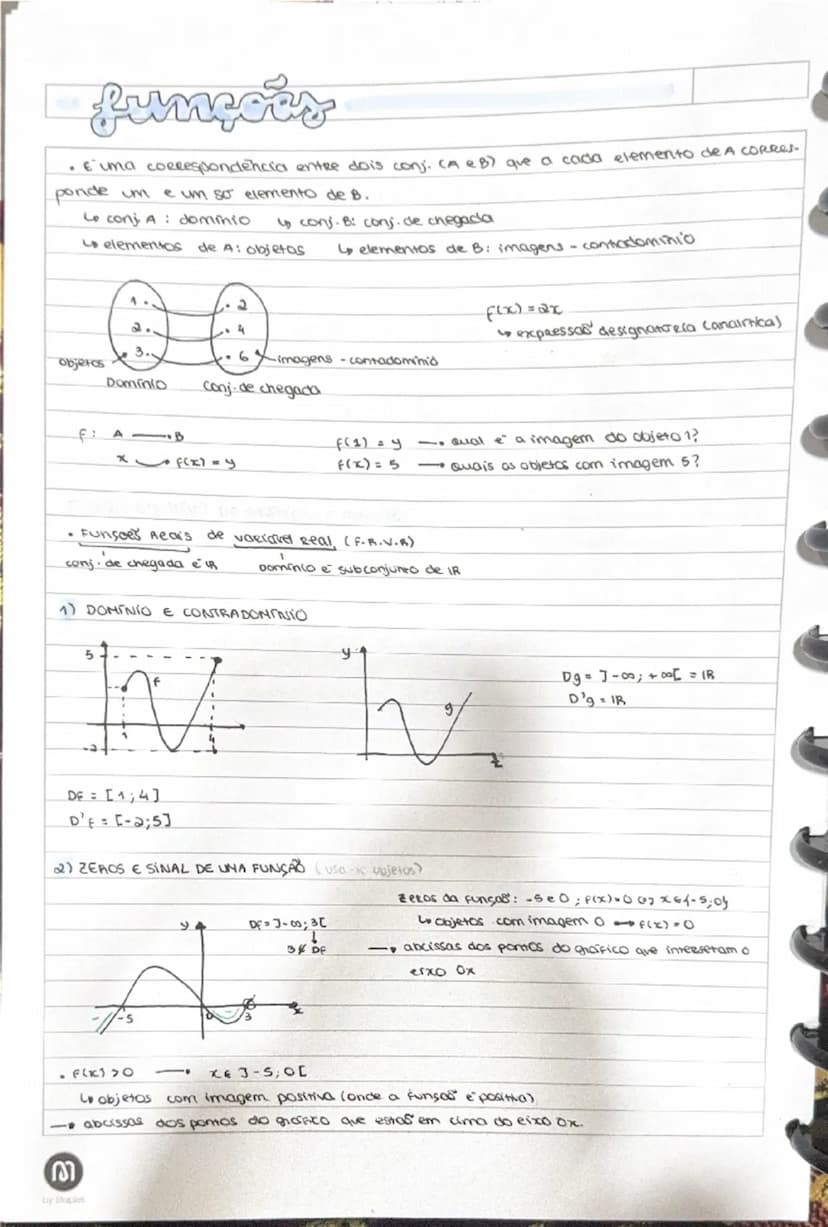 funções
• É uma correspondência entre dois conj. (A e B) que a cada elemento de A corres-
ponde um e um só elemento de B.
↳ conj A : domínio ↳ conj. B: conj. de chegada
↳ elementos de A: objetos ↳ elementos de B: imagens - contradomínio
1. . 2
2. . 4
3. . 6
f(x) = 2x
↳ expressão designatória (analítica)
objetos
imagens - contradomínio
Domínio conj. de chegada
f: A → B
x → f(x) = y
f(1) = y → qual é a imagem do objeto 1?
f(x) = 5 → quais os objetos com imagem 5?
• Funções Reais de variável real (F.R.V.R)
conj. de chegada é IR Domínio é subconjunto de IR
1) DOMÍNIO E CONTRADOMÍNIO
5
f
1
4
-2
y
g
x
Dg = ]-∞; +∞[ = IR
D'g = IR
Df = [1; 4]
D'f = [-2; 5]
2) ZEROS E SINAL DE UMA FUNÇÃO (usa-se objetos)
zeros da função: -5 e 0 ; f(x)=0 ⇔ x∈{-5; 0}
↳ objetos com imagem 0 → f(x) = 0
→ abcissas dos pontos do gráfico que intersetam o
eixo Ox
y
Df = ]-∞; 3[
↓
3 ∉ Df
-5
0
3
x
• f(x) > 0 → x ∈ ]-5; 0[
↳ objetos com imagem positiva (onde a função é positiva)
→ abcissas dos pontos do gráfico que estão em cima do eixo Ox.
by Staples